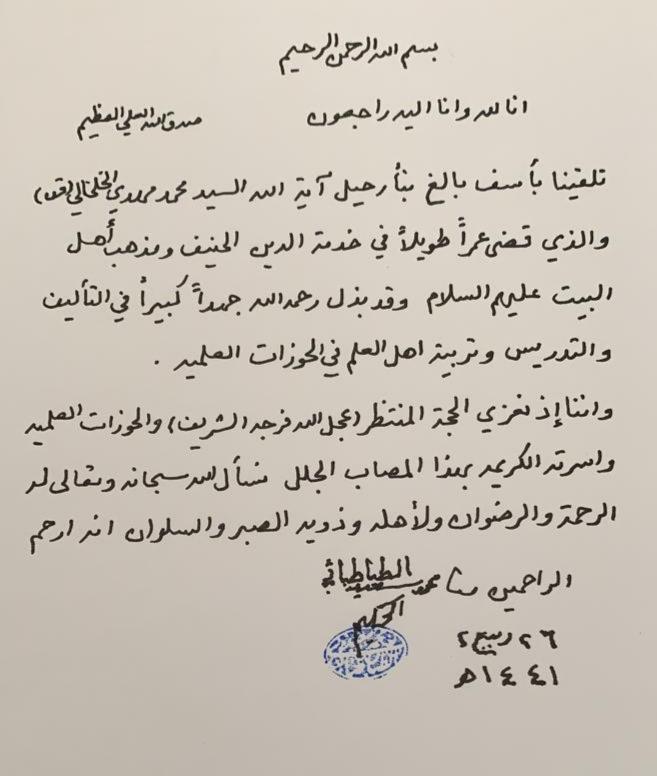 بسم الله الرحمن الرحيم
انا لله وانا اليه راجعون صدق الله العلي العظيم
تلقينا بأسف بالغ نبأ رحيل آية الله السيد محمد مهدي الخلخالي (قده)
والذي قضى عمراً طويلاً في خدمة الدين الحنيف ومذهب أهل
البيت عليهم السلام وقد بذل رحمه الله جهداً كبيراً في التأليف
والتدريس وتربية اهل العلم في الحوزات العلمية .
واننا إذ نعزي الحجة المنتظر (عجل الله فرجه الشريف) والحوزات العلمية
واسرته الكريمة بهذا المصاب الجلل نسأل الله سبحانه وتعالى له
الرحمة والرضوان ولأهله وذويه الصبر والسلوان انه ارحم
الراحمين محمد سعيد الطباطبائي
الحكيم
٢٦ ربيع ٢
١٤٤١هـ